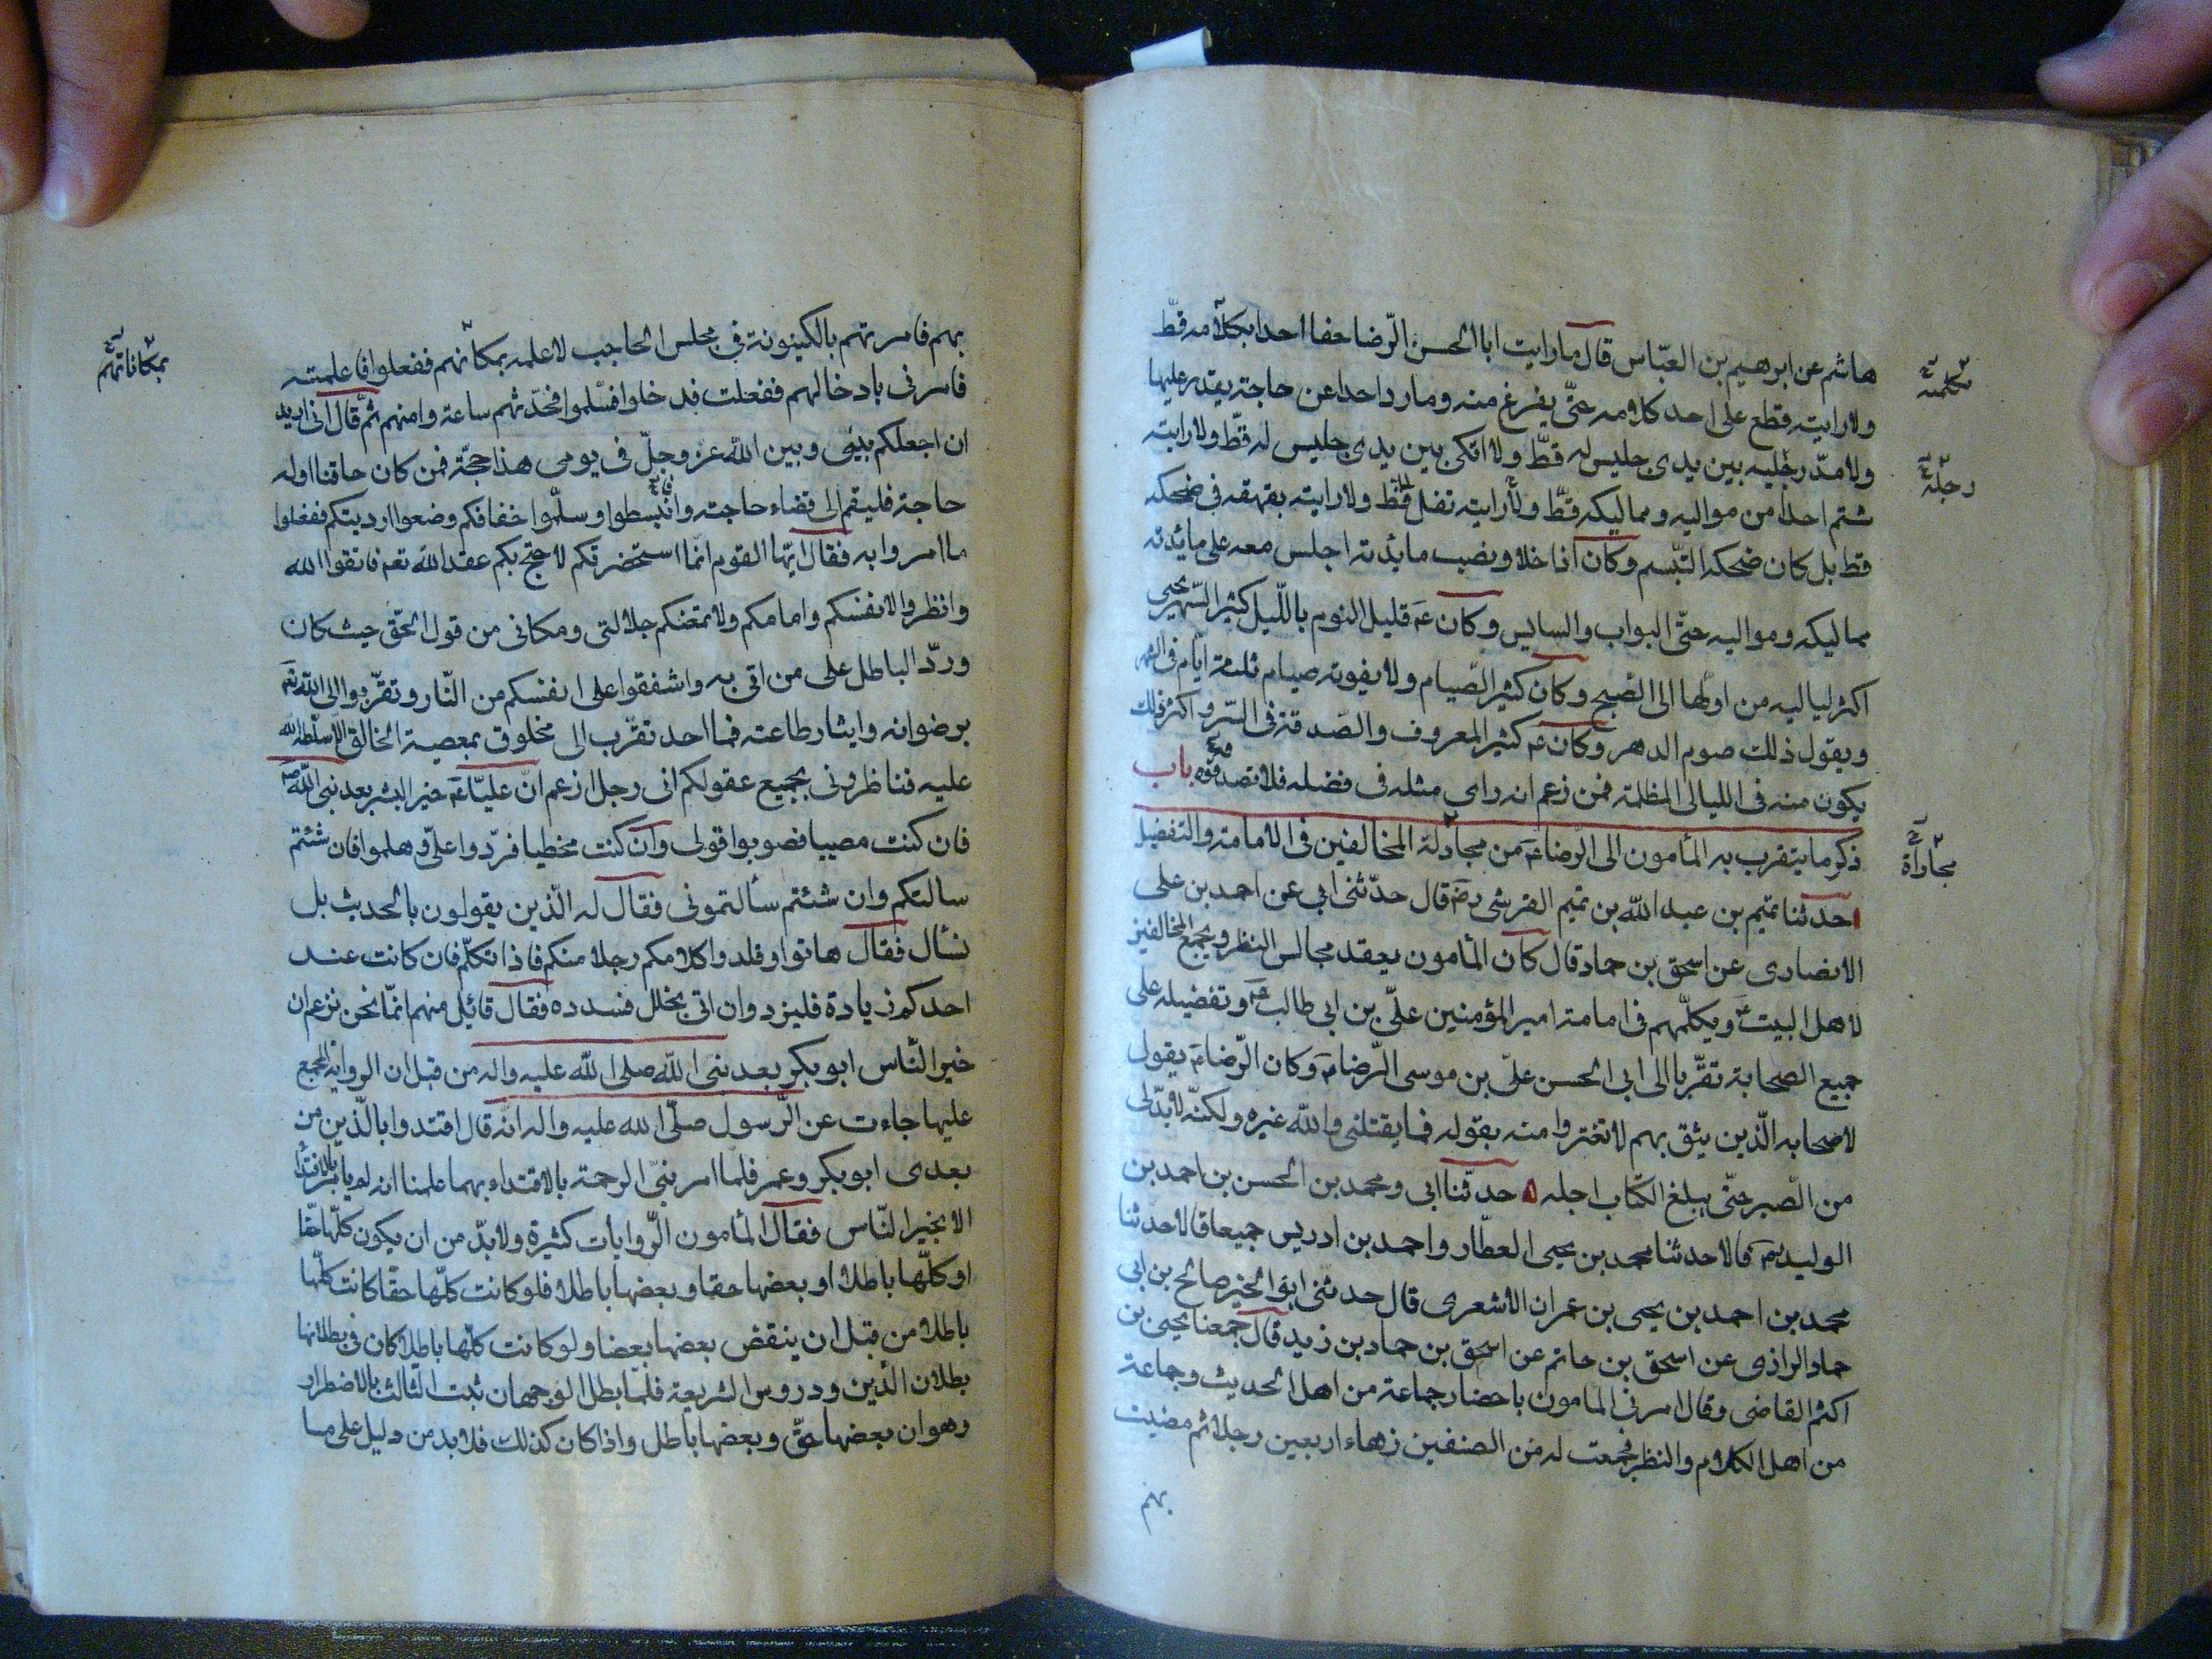 هاشم عن ابرهيم بن العبّاس قال ما رايت ابا الحسن الرّضا جفا احدا بكلامه قطّ
ولا رايته قطع على احد كلامه حتّى يفرغ منه وما رد احدا عن حاجة يقدر عليها
ولا مدّ رجليه بين يدى جليس له قطّ ولا اتكى بين يدى جليس له قطّ ولا رايته
شتم احدا من مواليه ومماليكه قطّ ولا رايته تفل قط ولا رايته يقهقه فى ضحكه
قط بل كان ضحكه التبّسم وكان اذا خلا ونصب مائدته اجلس معه على مائدته
مماليكه ومواليه حتّى البواب والسايس وكان عـ قليل النوم باللّيل كثير السّهر يحيى
اكثر لياليه من اولها الى الصّبح وكان كثير الصّيام ولا يفوته صيام ثلثة ايّام فى الشهر
ويقول ذلك صوم الدهر وكان عـ كثير المعروف والصّدقة فى السّر واكثر ذلك
يكون منه فى الليالى المظلمة فمن زعم انه راى مثله فى فضله فلا تصدقوه باب
ذكر ما يتقرب به المأمون الى الرّضا عـ من مجادلة المخالفين فى الامامة والتفضيل
حدثنا تميم بن عبد الله بن تميم القرشى رضـ قال حدّثنى ابى عن احمد بن على
الانصارى عن اسحق بن حماد قال كان المأمون يعقد مجالس النظر ويجمع المخالفين
لاهل البيت عـ ويكلّمهم فى امامة امير المؤمنين علىّ بن ابى طالب عـ وتفضيله على
جميع الصحابة تقرّبا الى ابى الحسن علىّ بن موسى الرّضا عـ وكان الرّضا عـ يقول
لاصحابه الّذين يثق بهم لا تغتروا منه بقوله فما يقتلنى والله غيره ولكنّه لا بدّ لى
من الصّبر حتّى يبلغ الكتاب اجله حدّثنا ابى ومحمد بن الحسن بن احمد بن
الوليد رضـ قالا حدثنا محمد بن يحيى العطّار واحمد بن ادريس جميعا قالا حدثنا
محمد بن احمد بن يحيى بن عمران الاشعرى قال حدثنى ابو الخير صالح بن ابى
حماد الرازى عن اسحق بن حاتم عن اسحق بن حماد بن زيد قال جمعنا يحيى بن
اكثم القاضى وقال امرنى المامون باحضار جماعة من اهل الحديث وجماعة
من اهل الكلام والنظر فجمعت له من الصنفين زهاء اربعين رجلا ثم مضيت
بهم
بكلمة
رجله
مجاراة
بهم فامرتهم بالكينونة فى مجلس الحاجب لاعلمه بمكانهم ففعلوا فاعلمته
فامرنى بادخالهم ففعلت فدخلوا فسّلموا فحدّثهم ساعة وامنهم ثمّ قال انى اريد
ان اجعلكم بينى وبين الله عز وجلّ فى يومى هذا حجّة فمن كان حاقنا او له
حاجة فليقم الى قضاء حاجته وانبسطوا وسلّوا خفافكم وضعوا ارديتكم ففعلوا
ما امروا به فقال ايّها القوم انّما استحضرتكم لاحتج بكم عقد الله تعـ فاتقوا الله
وانظروا لانفسكم وامامكم ولا يمنعكم جلالتى ومكانى من قول الحقّ حيث كان
وردّ الباطل على من اتى به واشفقوا على انفسكم من النّار وتقرّبوا الى الله تعـ
برضوانه وايثار طاعته فما احد تقرّب الى مخلوق بمعصية الخالق الّا سلّطه الله
عليه فناظرونى بجميع عقولكم انى رجل ازعم انّ عليّا عـ خير البشر بعد نبى الله صـ
فان كنت مصيبا فصوبوا قولى وان كنت مخطيا فرّدوا علىّ وهلموا فان شئتم
سالتكم وان شئتم سألتمونى فقال له الّذين يقولون بالحديث بل
نسأل فقال هاتوا وقلدوا كلامكم رجلا منكم فاذا تكلّم فان كانت عند
احدكم زيادة فليزد وان اتى بخلل فسددوه فقال قائل منهم انّما نحن نزعم ان
خير النّاس ابو بكر بعد نبى الله صلى الله عليه واله من قبل ان الرواية المجمع
عليها جاءت عن الرّسول صلّى الله عليه واله انّه قال اقتدوا بالّذين من
بعدى ابو بكر وعمر فلما امر نبّى الرحمة بالاقتداء بهما علمنا انه لم يامر بالاقتدا
الا بخير النّاس فقال المأمون الرّوايات كثيرة ولا بدّ من ان يكون كلّها حقّا
او كلّها باطلا او بعضها حقا وبعضها باطلا فلو كانت كلّها حقّا كانت كلّها
باطلا من قبل ان ينقض بعضها بعضا ولو كانت كلّها باطلا كان فى بطلانها
بطلان الدّين ودروس الشريعة فلمّا بطل الوجهان ثبت الثّالث بالاضطرار
وهو ان بعضها حقّ وبعضها باطل واذا كان كذلك فلا بد من دليل على ما